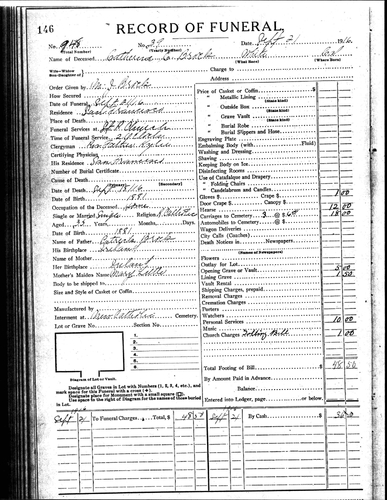 146
RECORD OF FUNERAL
No. (Total Number) No. 29 (Yearly Number) Date, Sept 21 1916
Name of Deceased, Catherine C. Brooks White (What Race) Cal (Where Born)
Wife—Widow
Son—Daughter of
Charge to
Address
Order Given by M. J. Brooks
How Secured
Date of Funeral
Place of Death
Funeral Services at
Time of Funeral Service
Clergyman Rev Father
Certifying Physician
His Residence San Francisco
Number of Burial Certificate
Cause of Death
(Secondary)
Date of Death Sept
Date of Birth 1881
Occupation of the Deceased
Single or Married Single Religion Catholic
Aged Years, Months, Days.
Date of Birth 1881
Name of Father,
His Birthplace Ireland
Her Birthplace Ireland
Mother's Maiden Name Mary
Body to be shipped to
Size and Style of Casket or Coffin
Manufactured by
Interment at New Catholic Cemetery
Lot or Grave No. Section No.
Diagram of Lot or Vault.
1.
2.
3.
4.
5.
6.
7.
Designate all Graves in Lot with Numbers (1, 2, 3, 4, etc.), and
mark space for this Funeral with a cross (+).
Designate place for Monument with a small square (□).
Use space to the right of Diagram for the names of those buried
in Lot.
Price of Casket or Coffin $
" Metallic Lining
(State kind)
" Outside Box
(State kind)
" Grave Vault
(State kind)
" Burial Robe
" Burial Slippers and Hose
Engraving Plate
Embalming Body (with Fluid)
Washing and Dressing
Shaving
Keeping Body on Ice
Disinfecting Rooms
Use of Catafalque and Drapery
" Folding Chairs
" Candelabrum and Candles
Gloves $ Crape $ 1 00
Door Crape $ Canopy $
Hearse 12 00
Carriages to Cemetery 3 @ $6.00 18 00
Automobiles to Cemetery @ $
Wagon Deliveries
City Calls (Coaches)
Death Notices in Newspapers
(Names of Newspapers)
Flowers
Outlay for Lot
Opening Grave or Vault 5 00
Lining Grave 1 50
Vault Rental
Shipping Charges, prepaid
Removal Charges
Cremation Charges
Porters
Watchers
Personal Services 10 00
Music
Church Charges Tolling Bell 1 00
Total Footing of Bill $ 48 50
By Amount Paid in Advance
Balance $
Entered into Ledger, page or below.
Sept 21 To Funeral Charges Total, $ 48 50 Sept 21 By Cash $